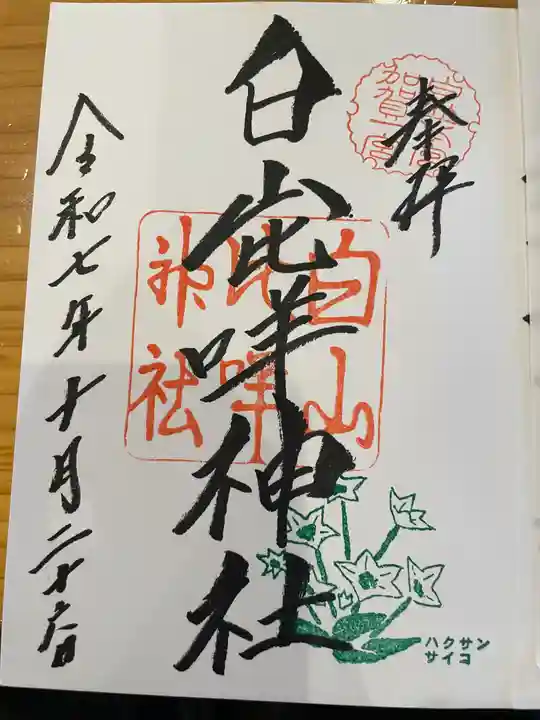 奉拝
白山比咩神社
白山
比咩
神社
令和七年十月二十六日
ハクサン
サイコ